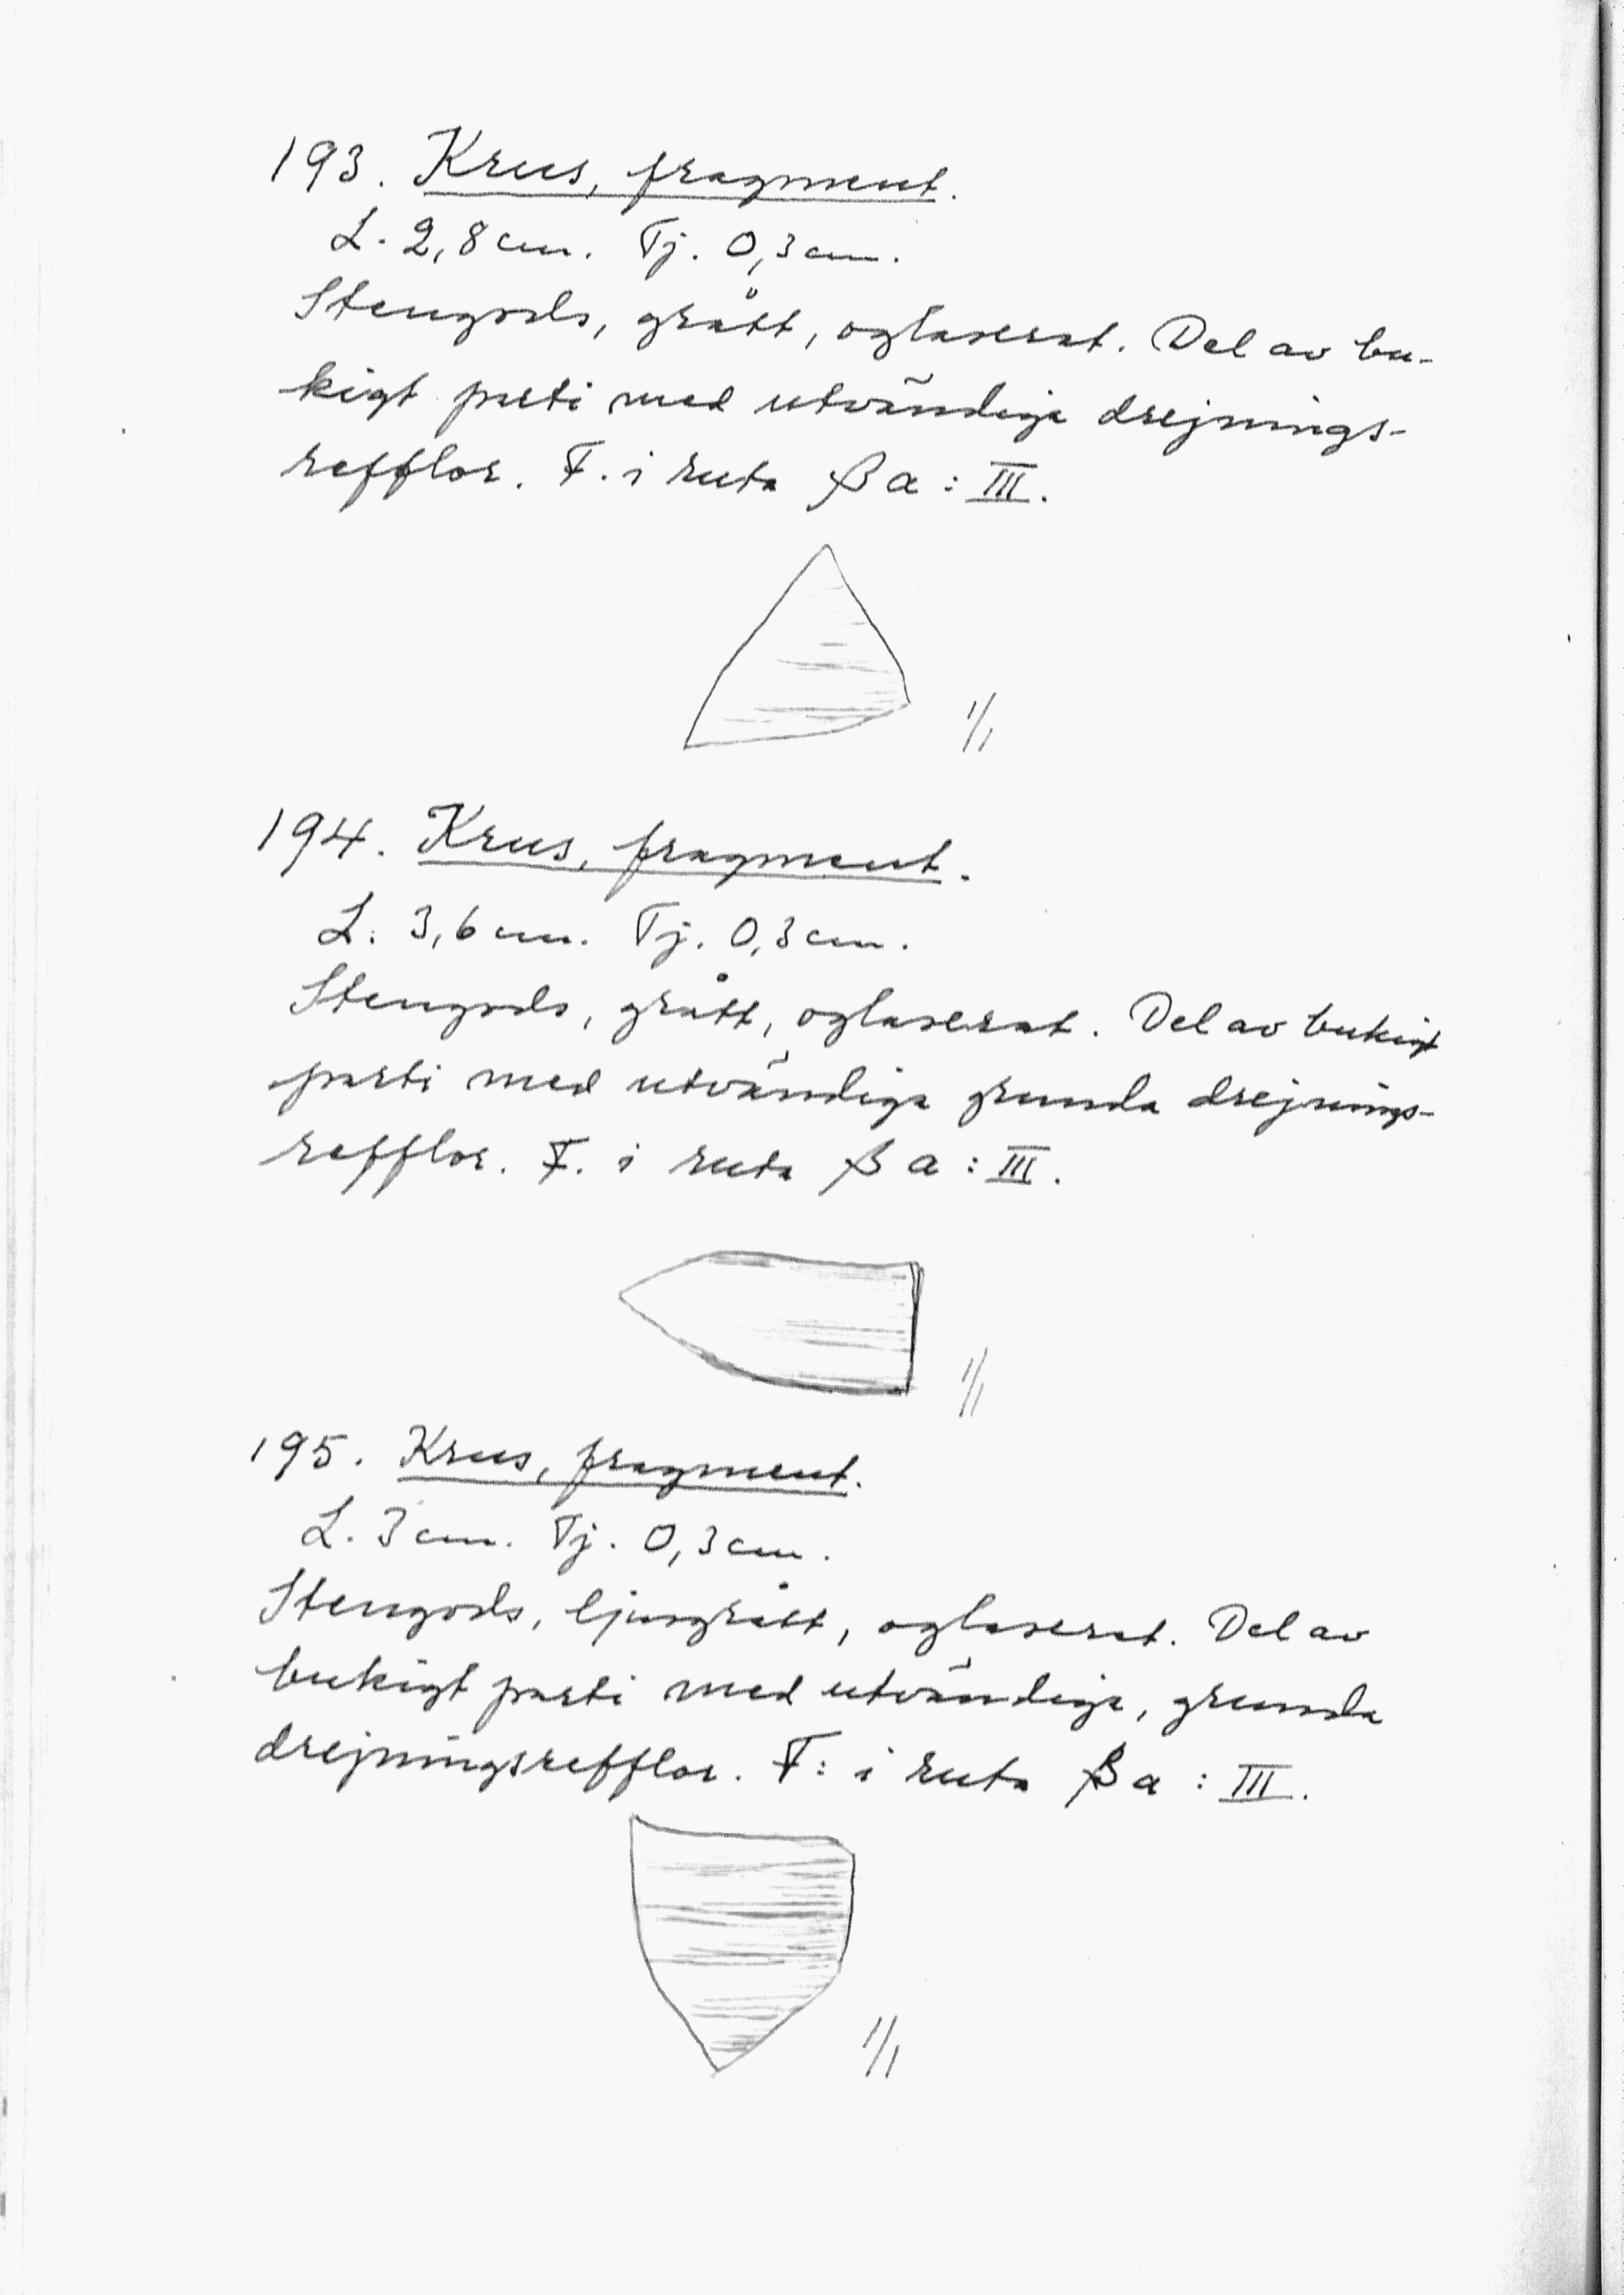 193. Krus, fragment.
L. 2,8 cm. Tj. 0,3 cm.
Stengods, grått, oglaserat. Del av bu-
kigt parti med utvändiga drejnings-
refflor. F. i ruta βa : III.
1/1
194. Krus, fragment.
L. 3,6 cm. Tj. 0,3 cm.
Stengods, grått, oglaserat. Del av bukigt
parti med utvändiga grunda drejnings-
refflor. F. i ruta βa : III.
1/1
195. Krus, fragment.
L. 3 cm. Tj. 0,3 cm.
Stengods, ljusgrått, oglaserat. Del av
bukigt parti med utvändiga, grunda
drejningsrefflor. F: i ruta βa : III.
1/1